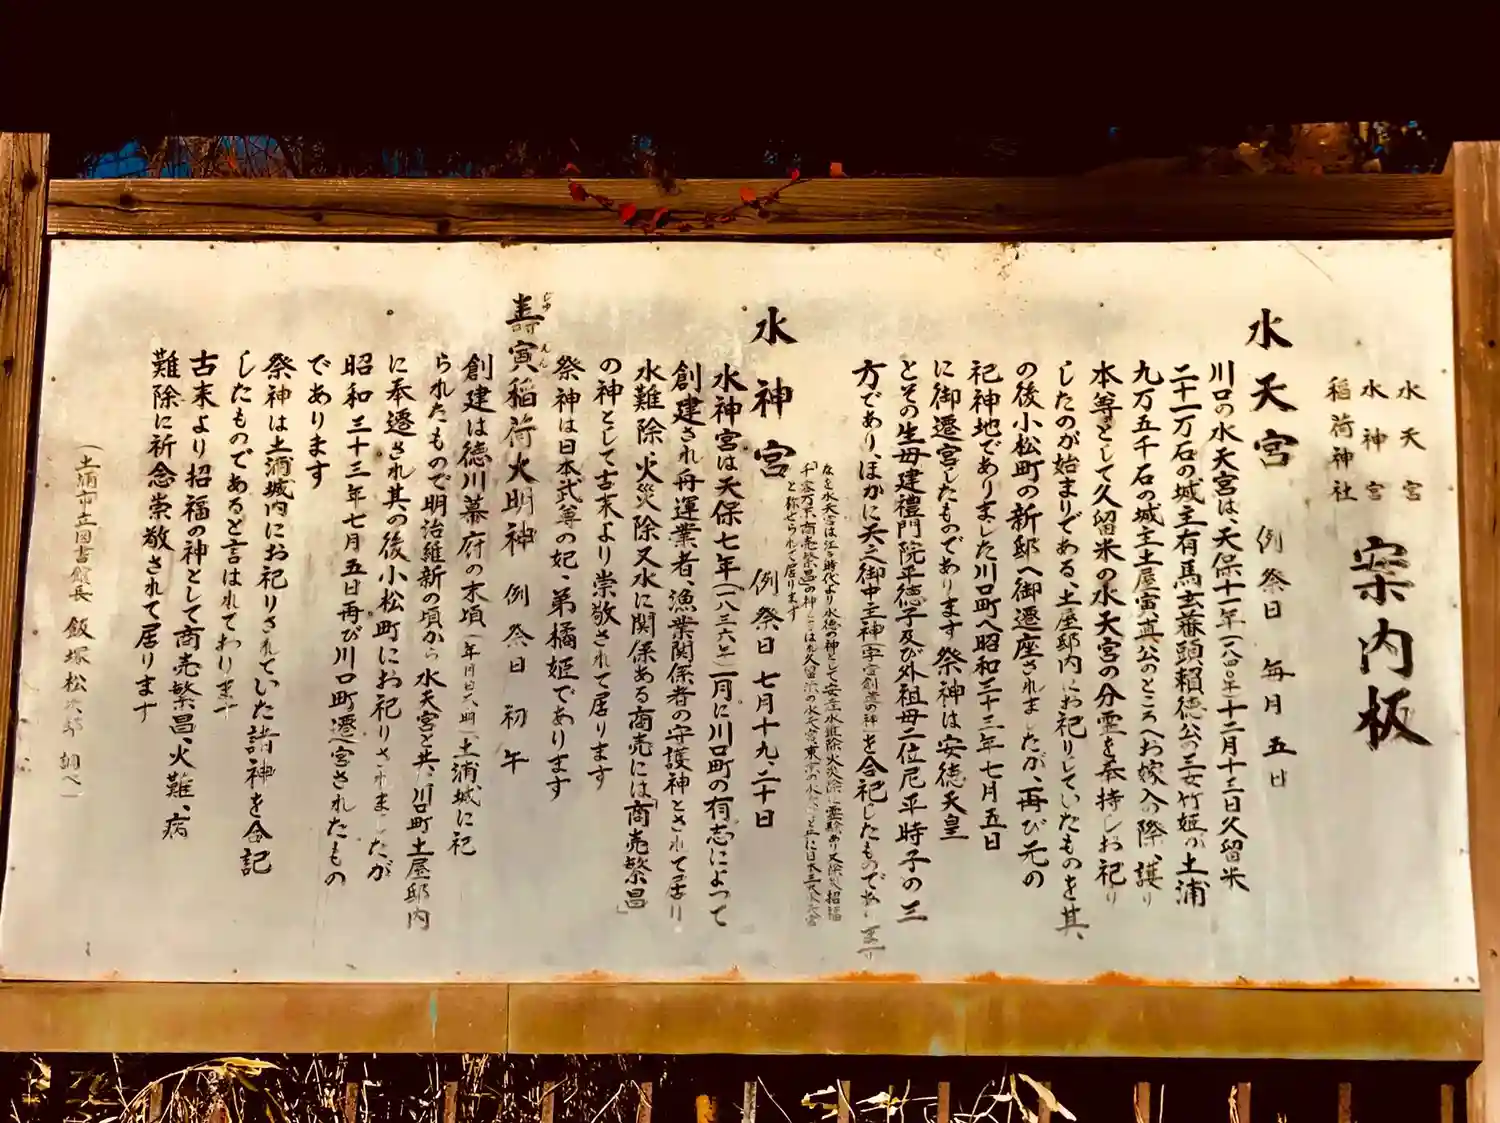 水天宮
水神宮
稲荷神社
案内板
水天宮 例祭日 毎月五日
川口の水天宮は、天保十一年(一八四〇年)十二月十三日久留米
二十一万石の城主有馬玄蕃頭頼徳公の三女竹姫が土浦
九万五千石の城主土屋寅直公のところへお嫁入の際、護り
本尊として久留米の水天宮の分霊を奉持しお祀り
したのが始まりである、土屋邸内にお祀りしていたものを其、
の後小松町の新邸へ御遷座されましたが、再び元の
祀神地でありました川口町へ昭和三十三年七月五日
に御遷宮したものであります祭神は安徳天皇
とその生母建禮門院平徳子及び外祖母二位尼平時子の三
方であり、ほかに天之御中主神(宇宙創造の神)を合祀したものであります
なを水天宮は江戸時代より水徳の神として安産水難除火災除に霊験あり又除災招福
千客万来、商売繁昌の神
と称せられて居ります
水神宮 例祭日 七月十九、二十日
水神宮は天保七年(一八三六年)二月に川口町の有志によって
創建され舟運業者、漁業関係者の守護神とされて居り
水難除、火災除又水に関係ある商売には「商売繁昌」
の神として古来より崇敬されて居ります
祭神は日本武尊の妃、弟橘姫であります
壽寅稲荷大明神 例祭日 初午
じゅ
えん
創建は徳川幕府の末頃(年月日不明)土浦城に祀
られたもので明治維新の頃から水天宮と共、川口町土屋邸内
に奉遷され其の後小松町にお祀りされましたが
昭和三十三年七月五日再び川口町遷宮されたもの
であります
祭神は土浦城内にお祀りされていた諸神を合記
したものであると言はれております
古来より招福の神として商売繁昌、火難、病
難除に祈念崇敬されて居ります
(土浦市立図書館長 飯塚松次郎 調べ)